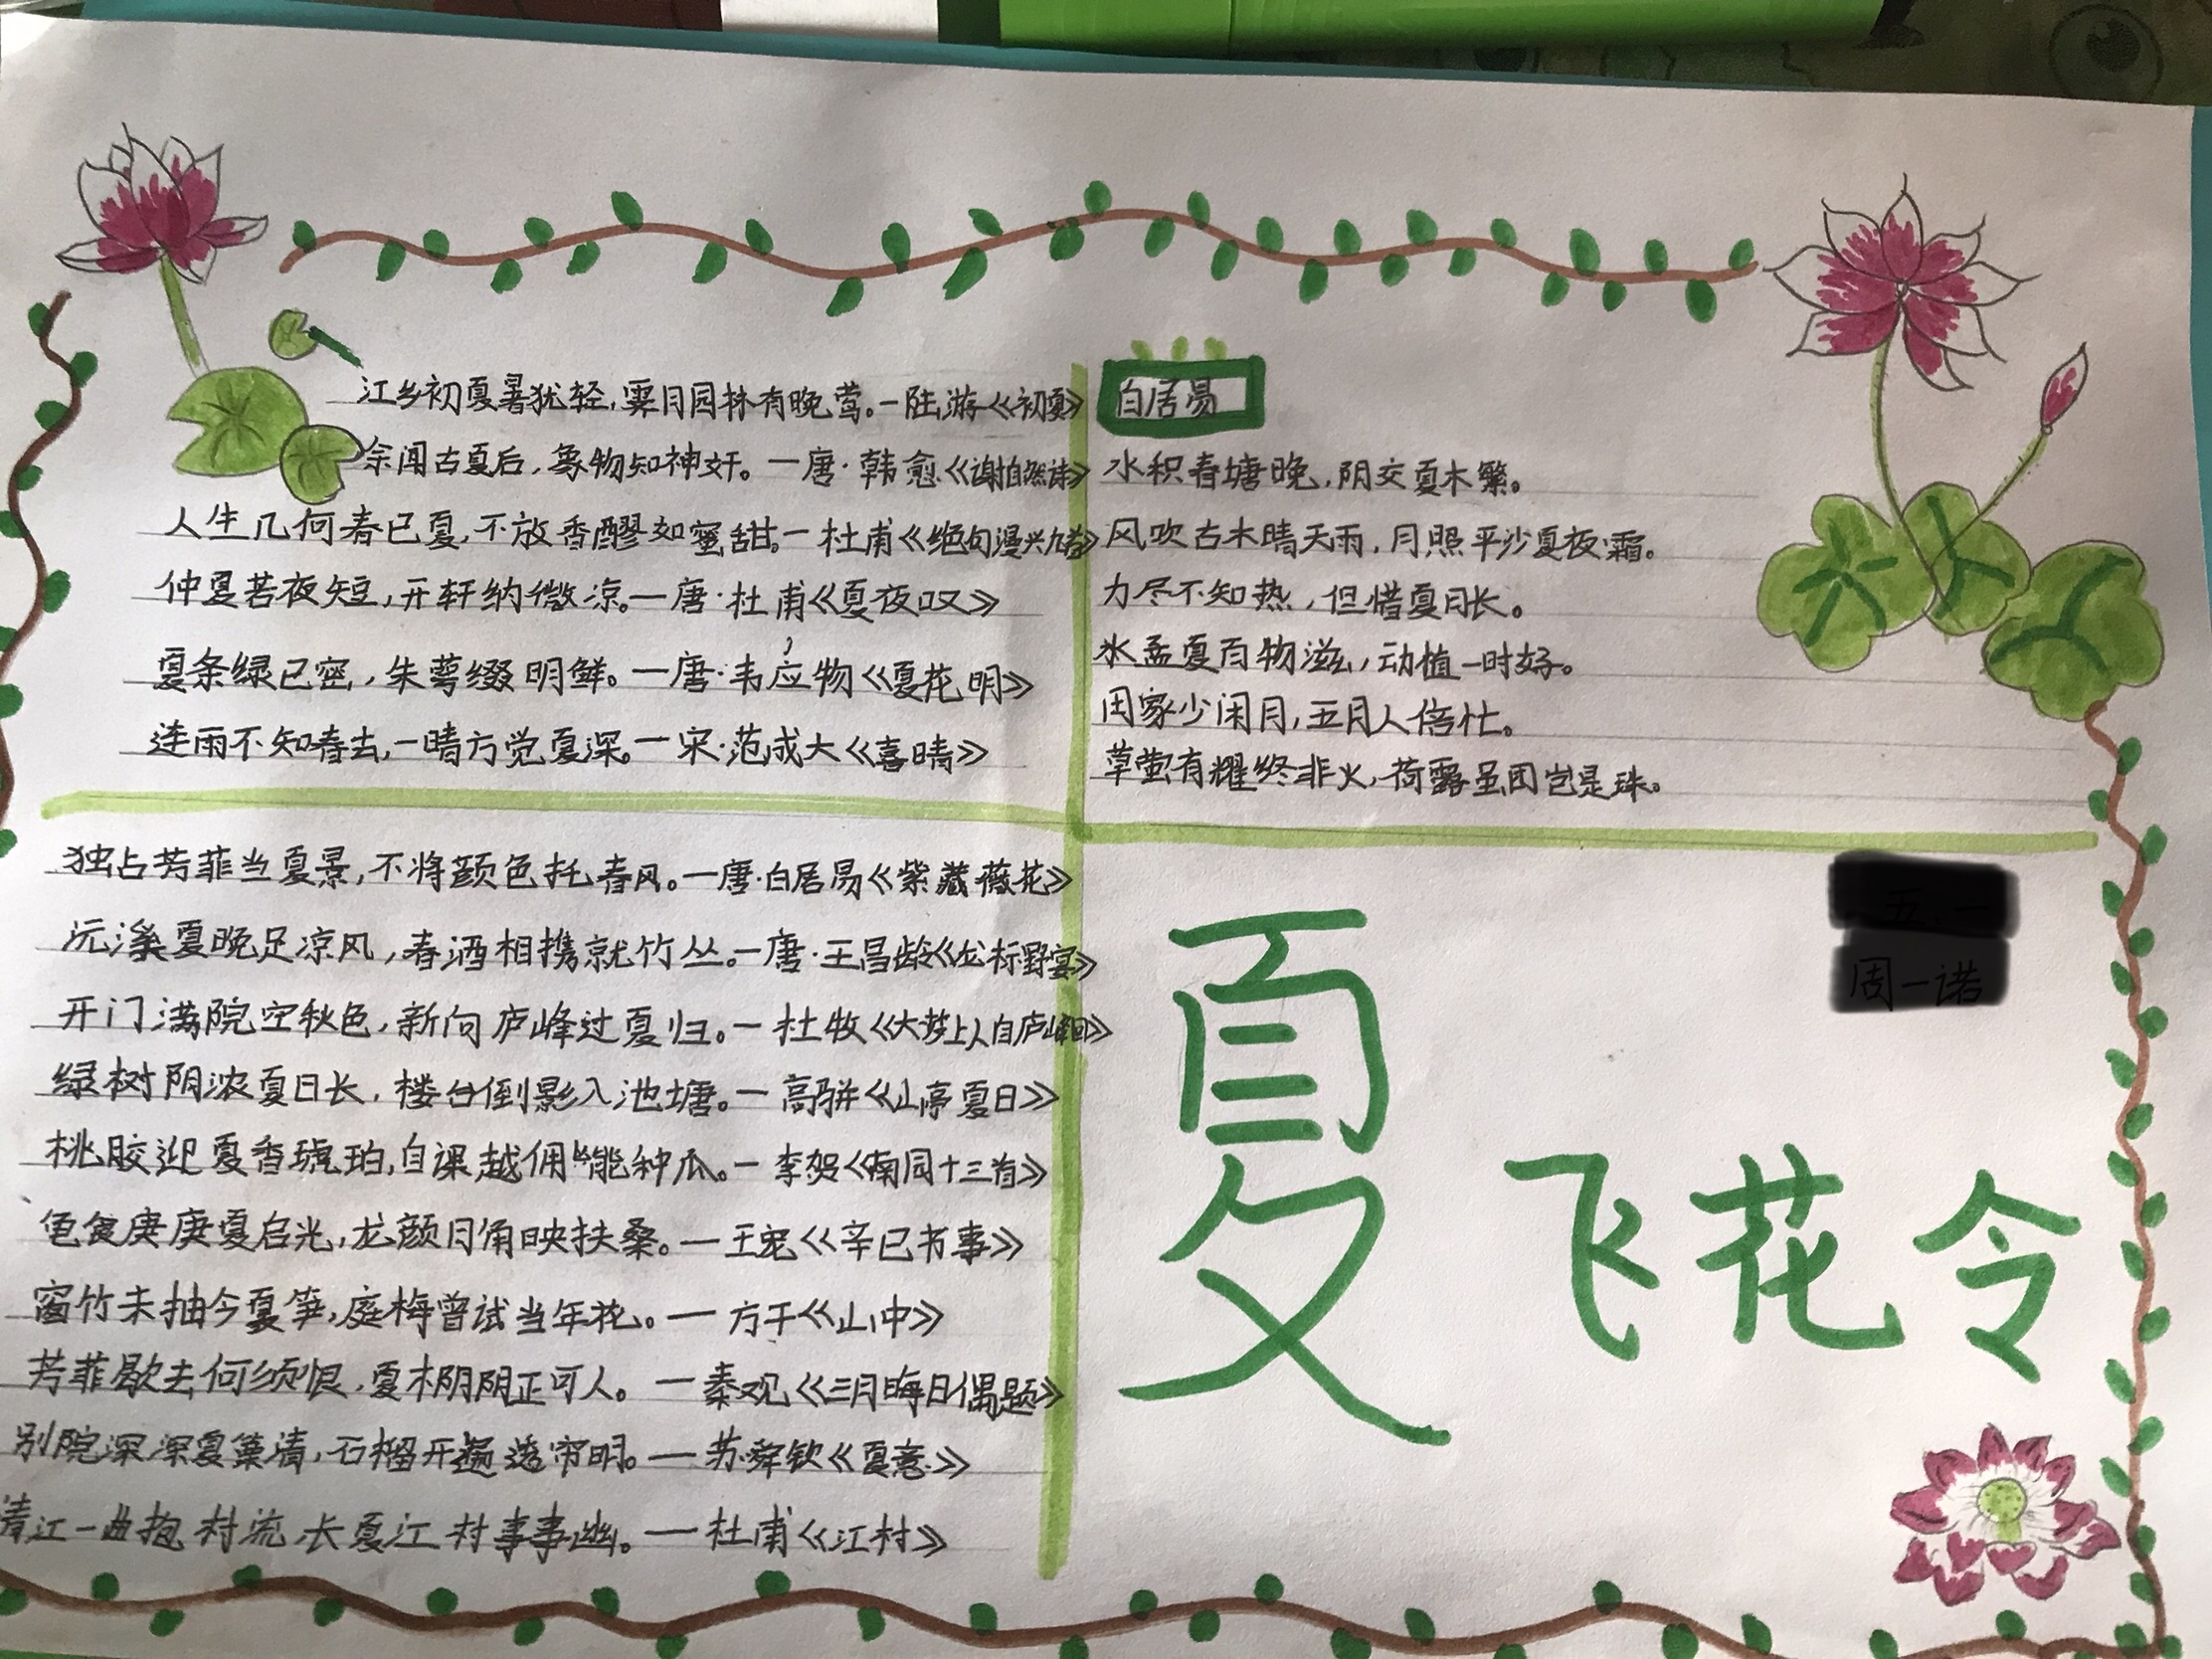 江乡初夏暑犹轻,霁月园林有晚莺。—陆游《初夏》
余闻古夏后,象物知神奸。—唐·韩愈《谢自然诗》
人生几何春已夏,不放香醪如蜜甜。—杜甫《绝句漫兴九首》
仲夏苦夜短,开轩纳微凉。—唐·杜甫《夏夜叹》
夏条绿已密,朱萼缀明鲜。—唐·韦应物《夏花明》
连雨不知春去,一晴方觉夏深。—宋·范成大《喜晴》
白居易
水积春塘晚,阴交夏木繁。
风吹古木晴天雨,月照平沙夏夜霜。
力尽不知热,但惜夏日长。
水孟夏百物滋,动植一时好。
田家少闲月,五月人倍忙。
草萤有耀终非火,荷露虽团岂是珠。
独占芳菲当夏景,不将颜色托春风。—唐·白居易《紫藏薇花》
沅溪夏晚足凉风,春酒相携就竹丛。—唐·王昌龄《龙标野宴》
开门满院空秋色,新向庐峰过夏归。—杜牧《大梦上人自庐峰回》
绿树阴浓夏日长,楼台倒影入池塘。—高骈《山亭夏日》
桃胶迎夏香琥珀,自课越佣能种瓜。—李贺《南园十三首》
龟食庚庚夏启光,龙颜日角映扶桑。—王《辛巳书事》
窗竹未抽今夏笋,庭梅曾试当年花。—方干《山中》
芳菲歇去何须恨,夏木阴阴正可人。—秦观《三月晦日偶题》
别院深深夏簟清,石榴开遍透帘明。—苏舜钦《夏意》
清江一曲抱村流,长夏江村事事幽。—杜甫《江村》
周一诺
夏
飞花令